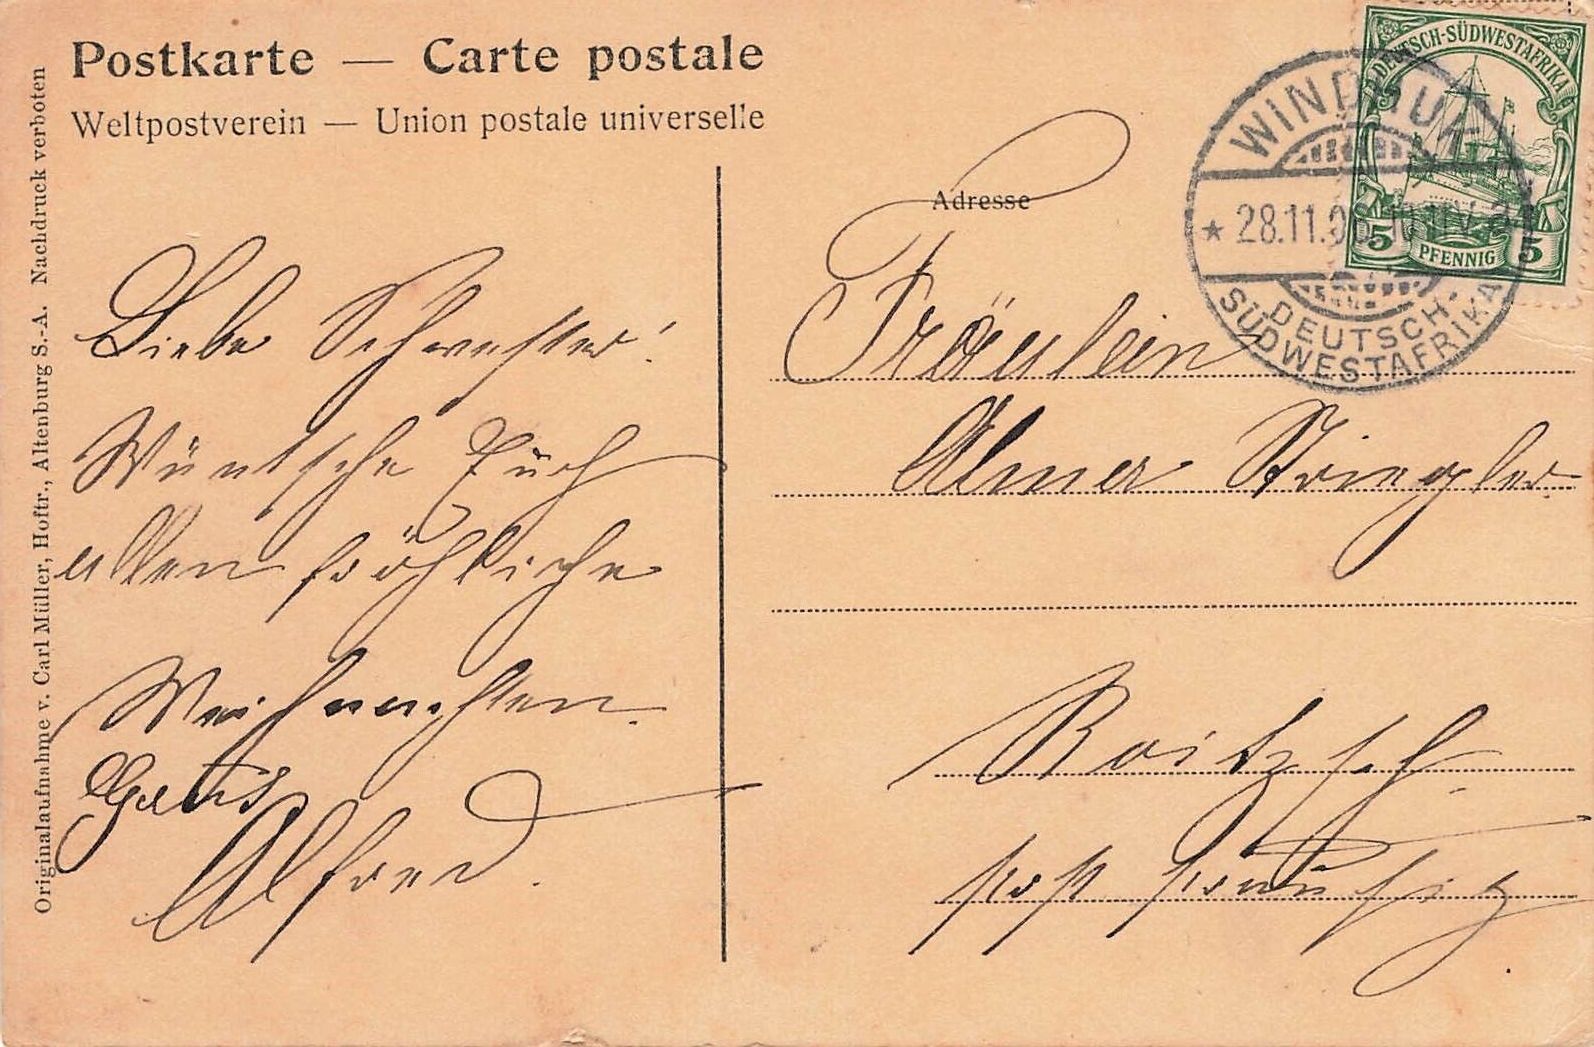 Postkarte — Carte postale
Weltpostverein — Union postale universelle
Originalaufnahme v. Carl Müller, Hoftr., Altenburg S.-A. Nachdruck verboten
Liebe Schwester!
Wüntsche Euch
allen fröhliche
Weihnachten.
Gruß
Alfred.
DEUTSCH-SÜDWESTAFRIKA
5 PFENNIG 5
WINDHUK
* 28.11.06.
DEUTSCH-
SÜDWESTAFRIKA
Adresse
Fräulein
Alma Striegler
Roitzsch.
post